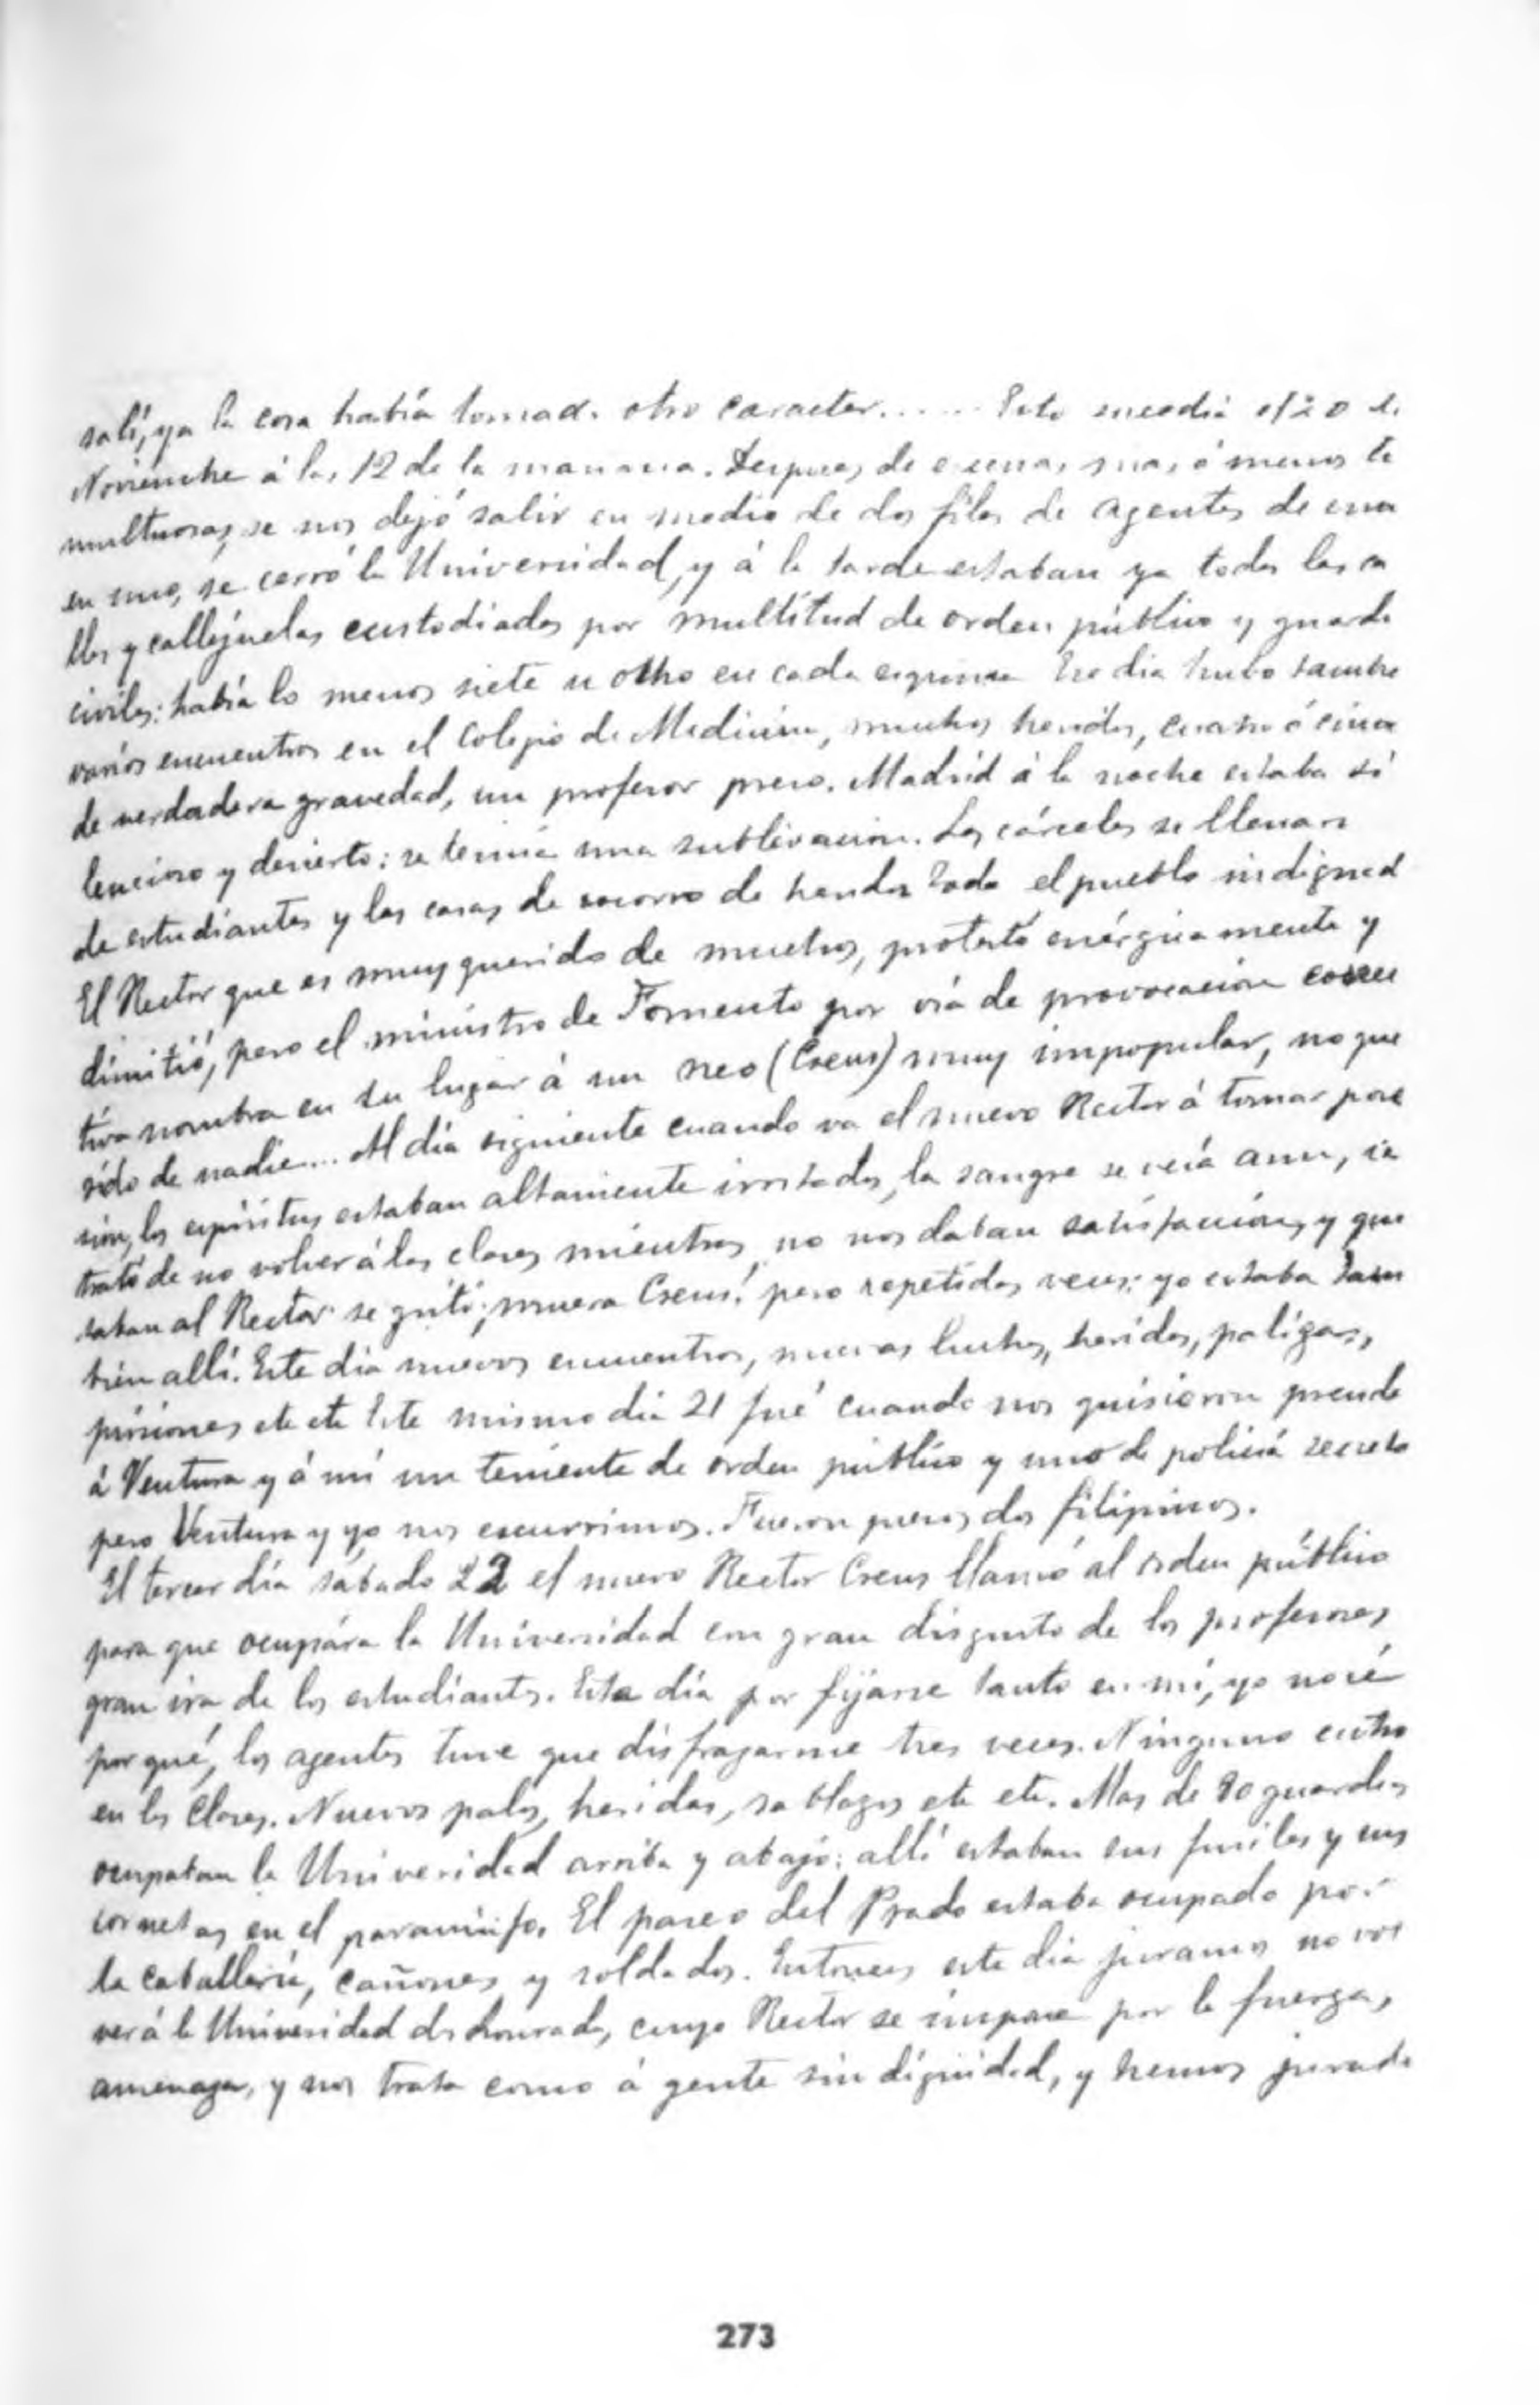 salí, ya la cosa había tomado otro caracter...... Esto sucedió el 20 de
Noviembre á las 12 de la manana. Despues de escenas mas ó menos tu
multuosas, se nos dejó salir en medio de dos filas de agentes de uno
en uno, se cerró la Universidad, y á la tarde estaban ya todas las ca
lles y callejuelas custodiadas por multitud de orden público y guardi
civiles: habia lo menos siete u otho en cada esquina Ese dia hubo tambie
varios encuentros en el Colegio de Medicina, muchos heridos, cuatro ó cinco
de verdadera gravedad, un profesor preso. Madrid á la noche estaba si
lencioso y desierto: se temia una sublevacion. Las cárceles se llenaron
de estudiantes y las casas de socorro de heridos Todo el pueblo indignad
El Rector que es muy querido de muchos, protestó enérgicamente y
dimitió, pero el ministro de Fomento por via de provocacion
tiva nombra en su lugar á un neo (Creus) muy impopular, no que
rido de nadie.... Al día siguiente cuando va el nuevo Rector á tomar pose
sion, los espíritus estaban altamente irritados, la sangre se veía aun, se
trató de no volver á las clases mientras no nos daban satisfaccion, y qui
taban al Rector: se gritó ¡muera Creus! pero repetidas veces: yo estaba tam
bien allí. Este dia nuevos encuentros, nuevas luchas, heridas, palizas,
prisiones etc etc Este mismo dia 21 fué cuando nos quisieron prende
á Ventura y á mí un teniente de orden público y uno de policía secreta
pero Ventura y yo nos escurrimos. Fueron presos dos filipinos.
El tercer día sábado 22 el nuevo Rector Creus llamó al orden público
para que ocupára la Universidad con gran disgusto de los profesores
gran ira de los estudiantes. Este día por fijarse tanto en mí, yo no sé
por qué, los agentes tuve que disfrazarme tres veces. Ninguno entro
en las Clases. Nuevos palos, heridas, sablazos etc etc. Mas de 80 guardias
ocupaban la Universidad arriba y abajo: allí estaban sus fusiles y sus
cornetas en el paraninfo. El paseo del Prado estaba ocupado por
la caballería, cañones y soldados. Entonces este dia juramos no vol
ver á la Universidad deshonrada, cuyo Rector se impone por la fuerza,
amenaza, y nos trata como á gente sin dignidad, y hemos jurado
273